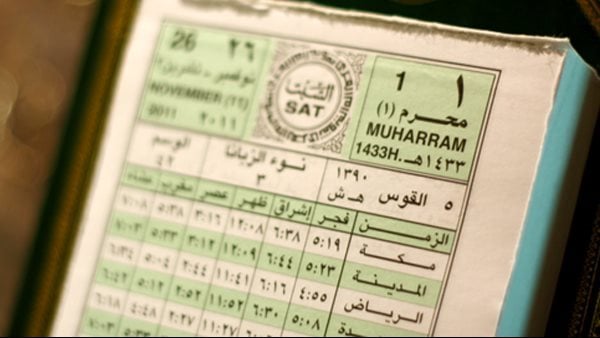 26 ٢٦
نوفمبر - تشرين٢
NOVEMBER (11)
2011 ٢٠١١
السبت
SAT
1 ١
محرم (١)
MUHARRAM
1433H. ١٤٣٣هـ
٥ القوس ١٣٩٠ هـ ش
نوء الزبانا ٣
الوسم ٤٢
الزمن فجر إشراق ظهر عصر مغرب عشاء
مكة ٥:١٩ ٦:٣٨ ١٢:٠٨ ٣:١٦ ٥:٣٨ ٧:٠٨
المدينة ٥:٢٣ ٦:٤٤ ١٢:٠٩ ٣:١٢ ٥:٣٣ ٧:٠٣
الرياض ٤:٥٥ ٦:١٦ ١١:٤١ ٢:٤٤ ٥:٠٤ ٦:٣٤
٥:٠٨ ٦:٣٠ ١١:٥٢ ٢:٥٢ ٥:١٢ ٦:٤٢
١١:٢٧ ٢:٢٧ ٤:٤٨ ٦:١٨
٥:٣٣ ٧:٠٣